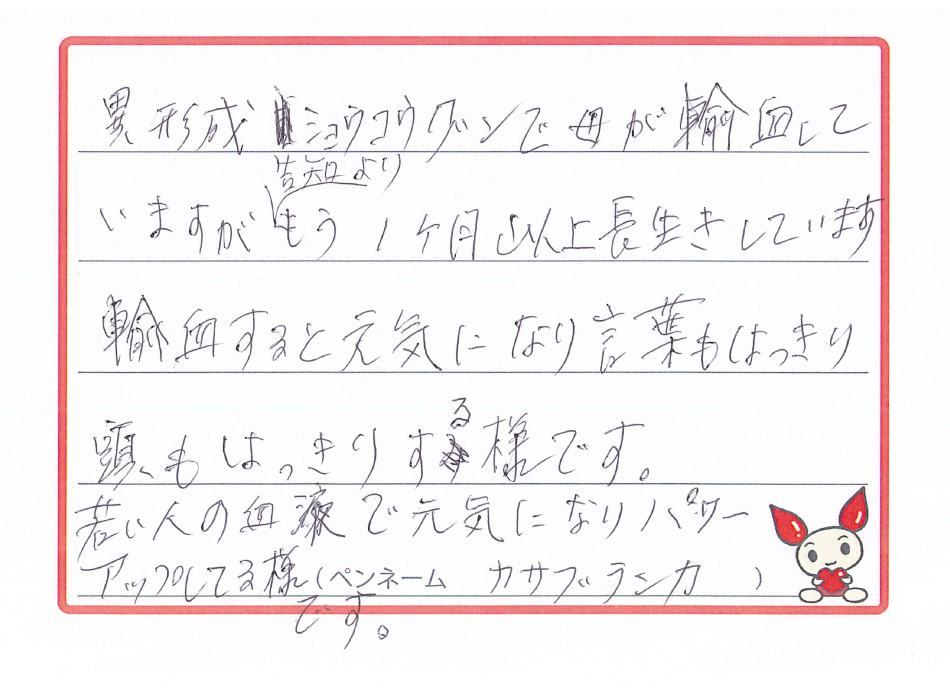 異形成ショウコウグンで母が輸血して
告知より
いますがもう1ケ月以上長生きしています
輸血すると元気になり言葉もはっきり
頭もはっきりする様です。
若い人の血液で元気になりパワー
アップしてる様(ペンネーム カサブランカ )
です。